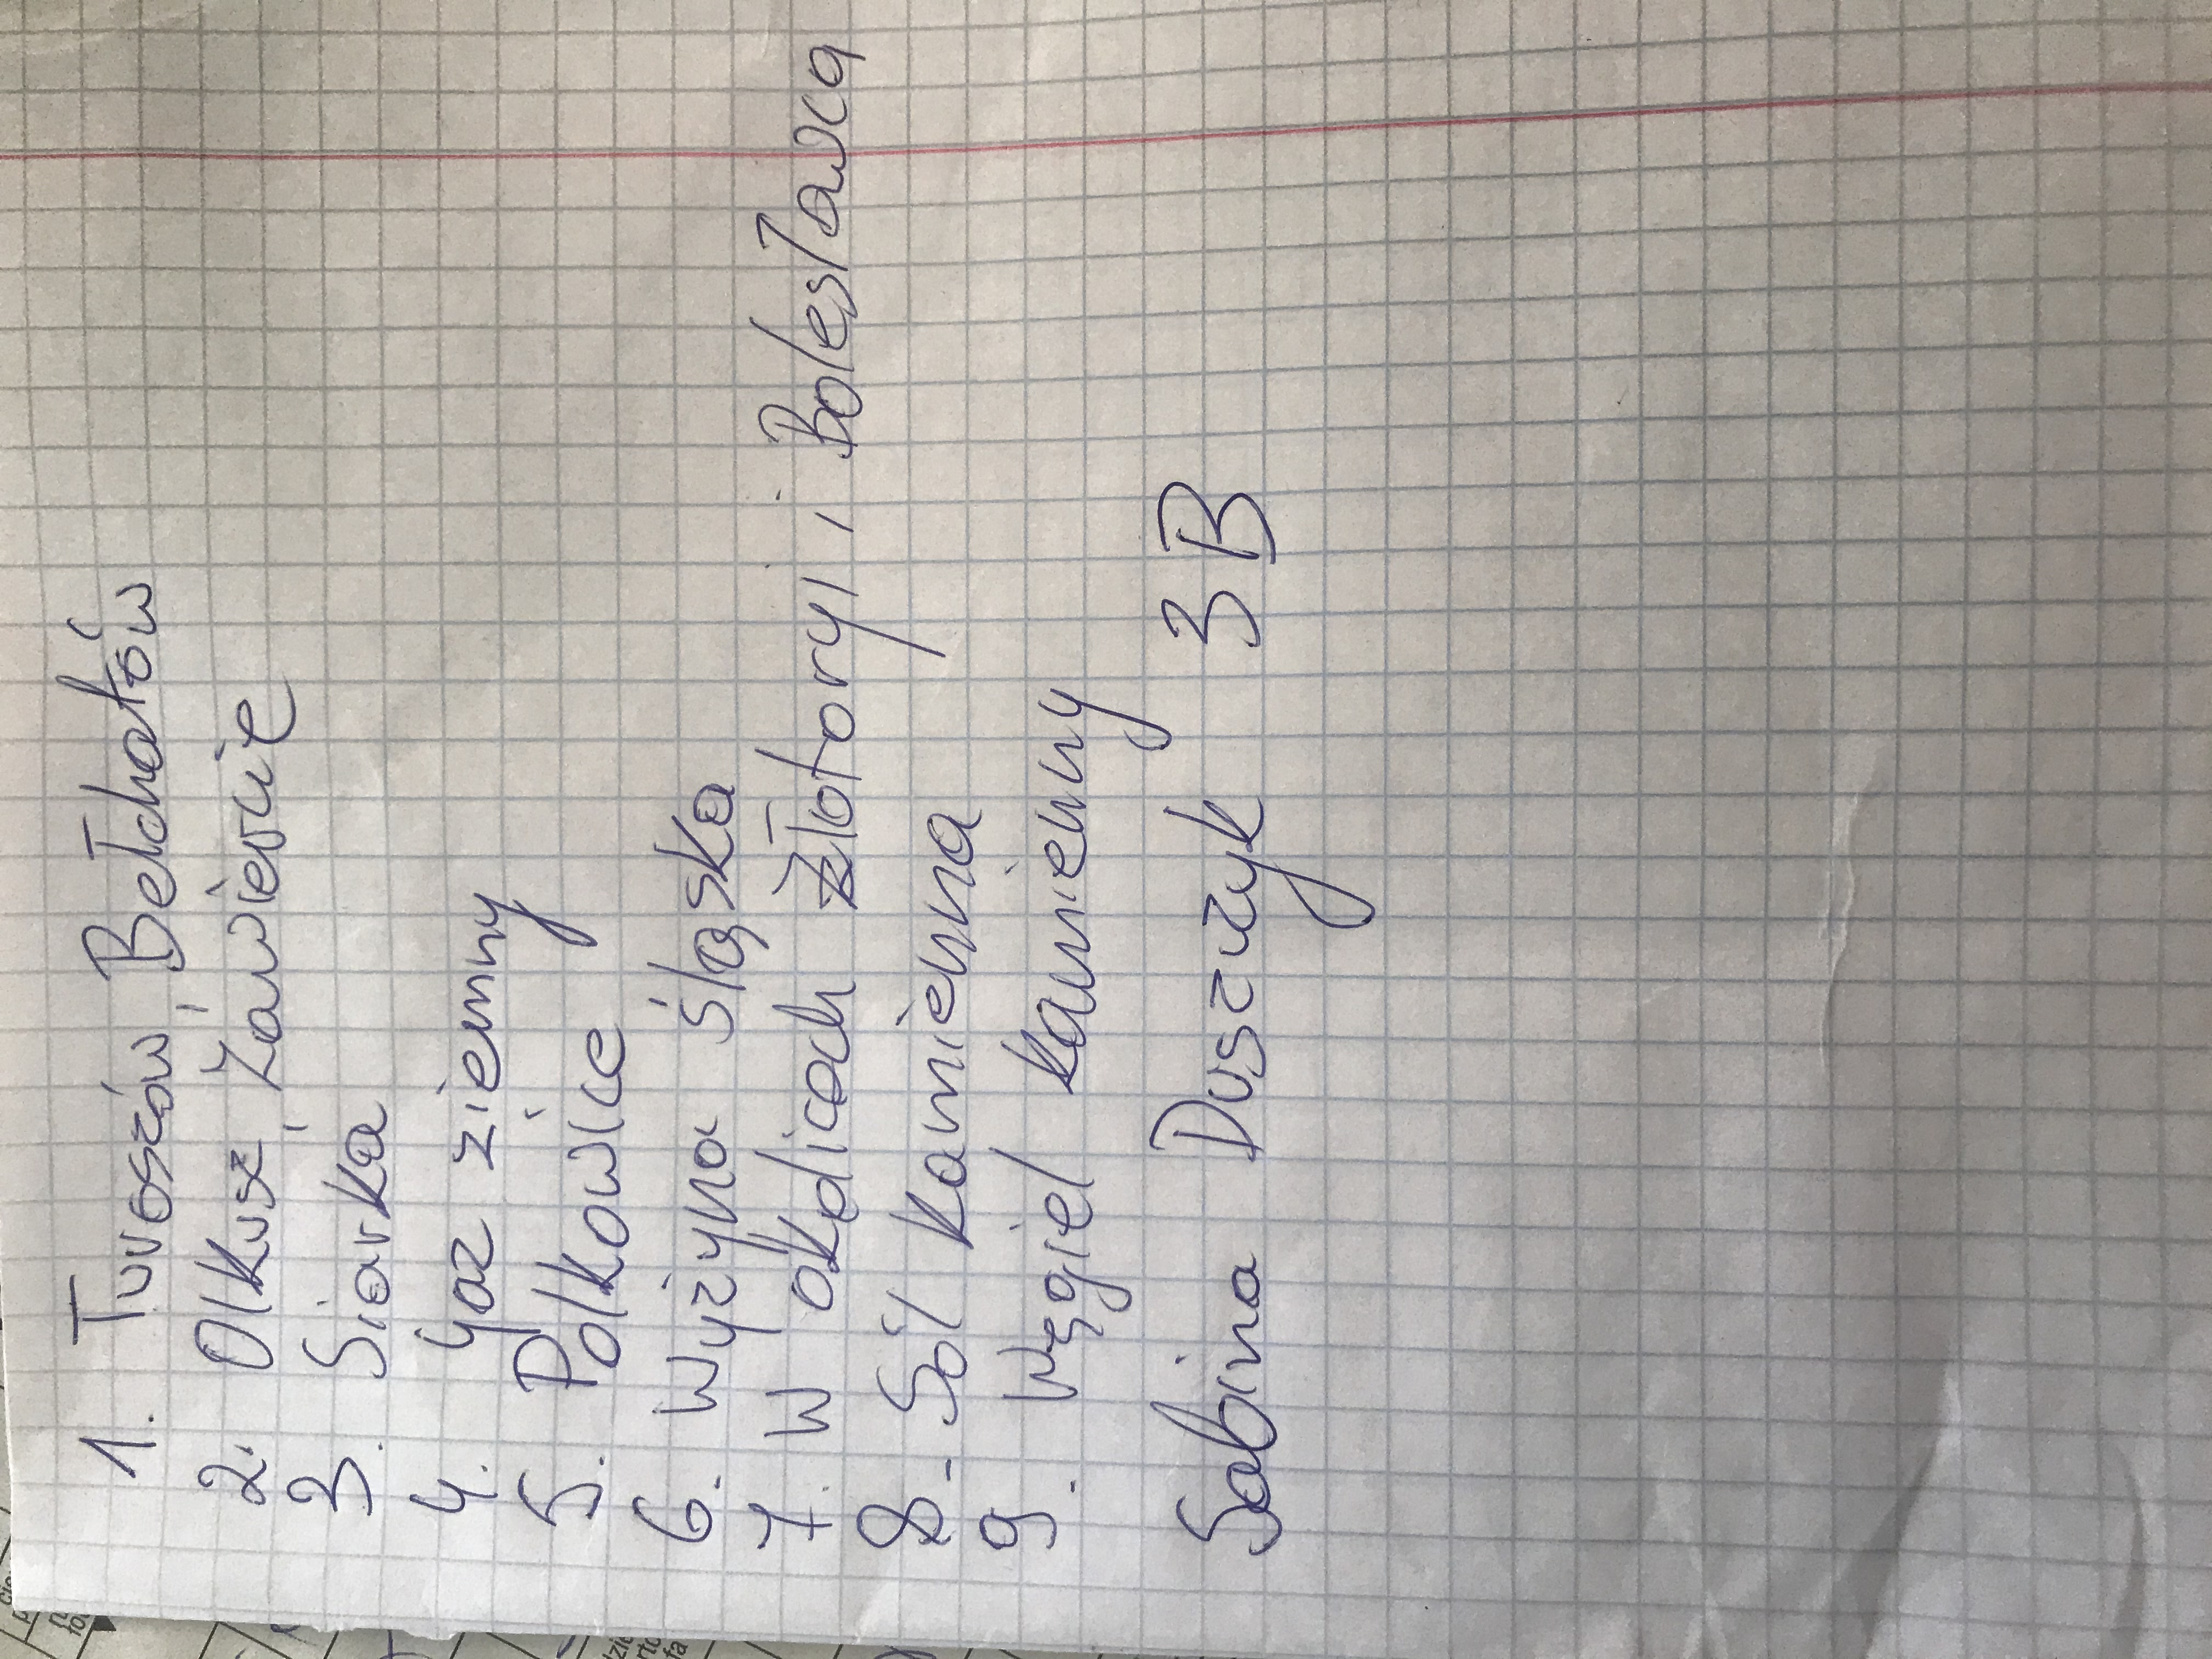 1. Turoszów, Bełchatów
2. Olkusz, Zawiercie
3. Siarka
4. Gaz ziemny
5. Polkowice
6. Wyżyna śląska
7. W okolicach Złotoryi i Bolesławca
8. Sól kamienna
9. Węgiel kamienny
Sabina Duszczyk 3B